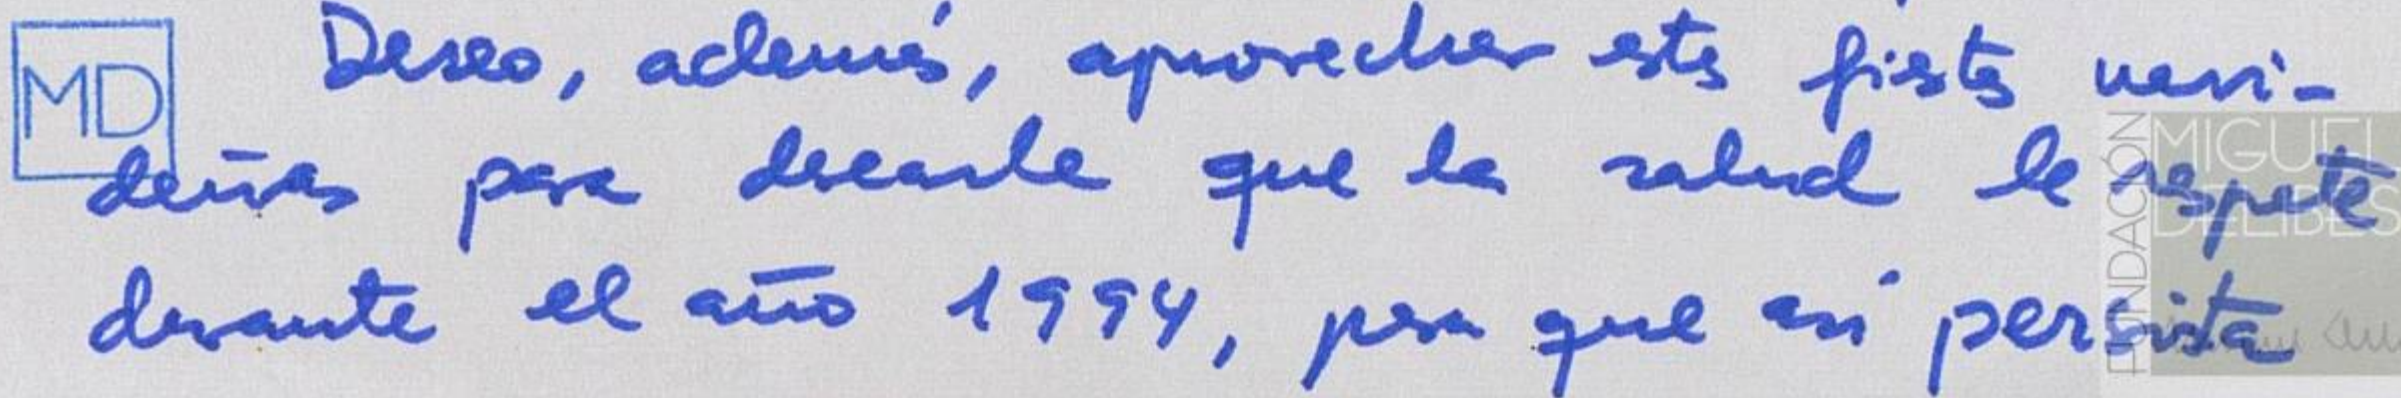 Deseo, además, aprovechar estas fiestas navi-
deñas para desearle que la salud le respete
durante el año 1994, para que así persista
MD
FUNDACIÓN
MIGUEL
DELIBES